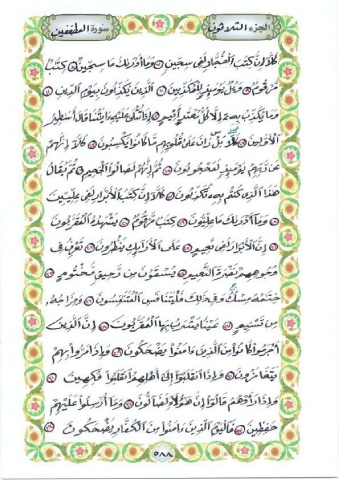 الجزء الثلاثون
سورة المطففين
كَلَّا إِنَّ كِتَٰبَ ٱلْفُجَّارِ لَفِى سِجِّينٍ ۝ وَمَآ أَدْرَىٰكَ مَا سِجِّينٌ ۝ كِتَٰبٌ
مَّرْقُومٌ ۝ وَيْلٌ يَوْمَئِذٍ لِّلْمُكَذِّبِينَ ۝ ٱلَّذِينَ يُكَذِّبُونَ بِيَوْمِ ٱلدِّينِ ۝
وَمَا يُكَذِّبُ بِهِۦٓ إِلَّا كُلُّ مُعْتَدٍ أَثِيمٍ ۝ إِذَا تُتْلَىٰ عَلَيْهِ ءَايَٰتُنَا قَالَ أَسَٰطِيرُ
ٱلْأَوَّلِينَ ۝ كَلَّا بَلْ رَانَ عَلَىٰ قُلُوبِهِم مَّا كَانُوا۟ يَكْسِبُونَ ۝ كَلَّآ إِنَّهُمْ
عَن رَّبِّهِمْ يَوْمَئِذٍ لَّمَحْجُوبُونَ ۝ ثُمَّ إِنَّهُمْ لَصَالُوا۟ ٱلْجَحِيمِ ۝ ثُمَّ يُقَالُ
هَٰذَا ٱلَّذِى كُنتُم بِهِۦ تُكَذِّبُونَ ۝ كَلَّآ إِنَّ كِتَٰبَ ٱلْأَبْرَارِ لَفِى عِلِّيِّينَ
۝ وَمَآ أَدْرَىٰكَ مَا عِلِّيُّونَ ۝ كِتَٰبٌ مَّرْقُومٌ ۝ يَشْهَدُهُ ٱلْمُقَرَّبُونَ
۝ إِنَّ ٱلْأَبْرَارَ لَفِى نَعِيمٍ ۝ عَلَى ٱلْأَرَآئِكِ يَنظُرُونَ ۝ تَعْرِفُ فِى
وُجُوهِهِمْ نَضْرَةَ ٱلنَّعِيمِ ۝ يُسْقَوْنَ مِن رَّحِيقٍ مَّخْتُومٍ ۝
خِتَٰمُهُۥ مِسْكٌ وَفِى ذَٰلِكَ فَلْيَتَنَافَسِ ٱلْمُتَنَٰفِسُونَ ۝ وَمِزَاجُهُۥ
مِن تَسْنِيمٍ ۝ عَيْنًا يَشْرَبُ بِهَا ٱلْمُقَرَّبُونَ ۝ إِنَّ ٱلَّذِينَ
أَجْرَمُوا۟ كَانُوا۟ مِنَ ٱلَّذِينَ ءَامَنُوا۟ يَضْحَكُونَ ۝ وَإِذَا مَرُّوا۟ بِهِمْ
يَتَغَامَزُونَ ۝ وَإِذَا ٱنقَلَبُوٓا۟ إِلَىٰٓ أَهْلِهِمُ ٱنقَلَبُوا۟ فَكِهِينَ ۝
وَإِذَا رَأَوْهُمْ قَالُوٓا۟ إِنَّ هَٰٓؤُلَآءِ لَضَآلُّونَ ۝ وَمَآ أُرْسِلُوا۟ عَلَيْهِمْ
حَٰفِظِينَ ۝ فَٱلْيَوْمَ ٱلَّذِينَ ءَامَنُوا۟ مِنَ ٱلْكُفَّارِ يَضْحَكُونَ ۝
٥٨٨